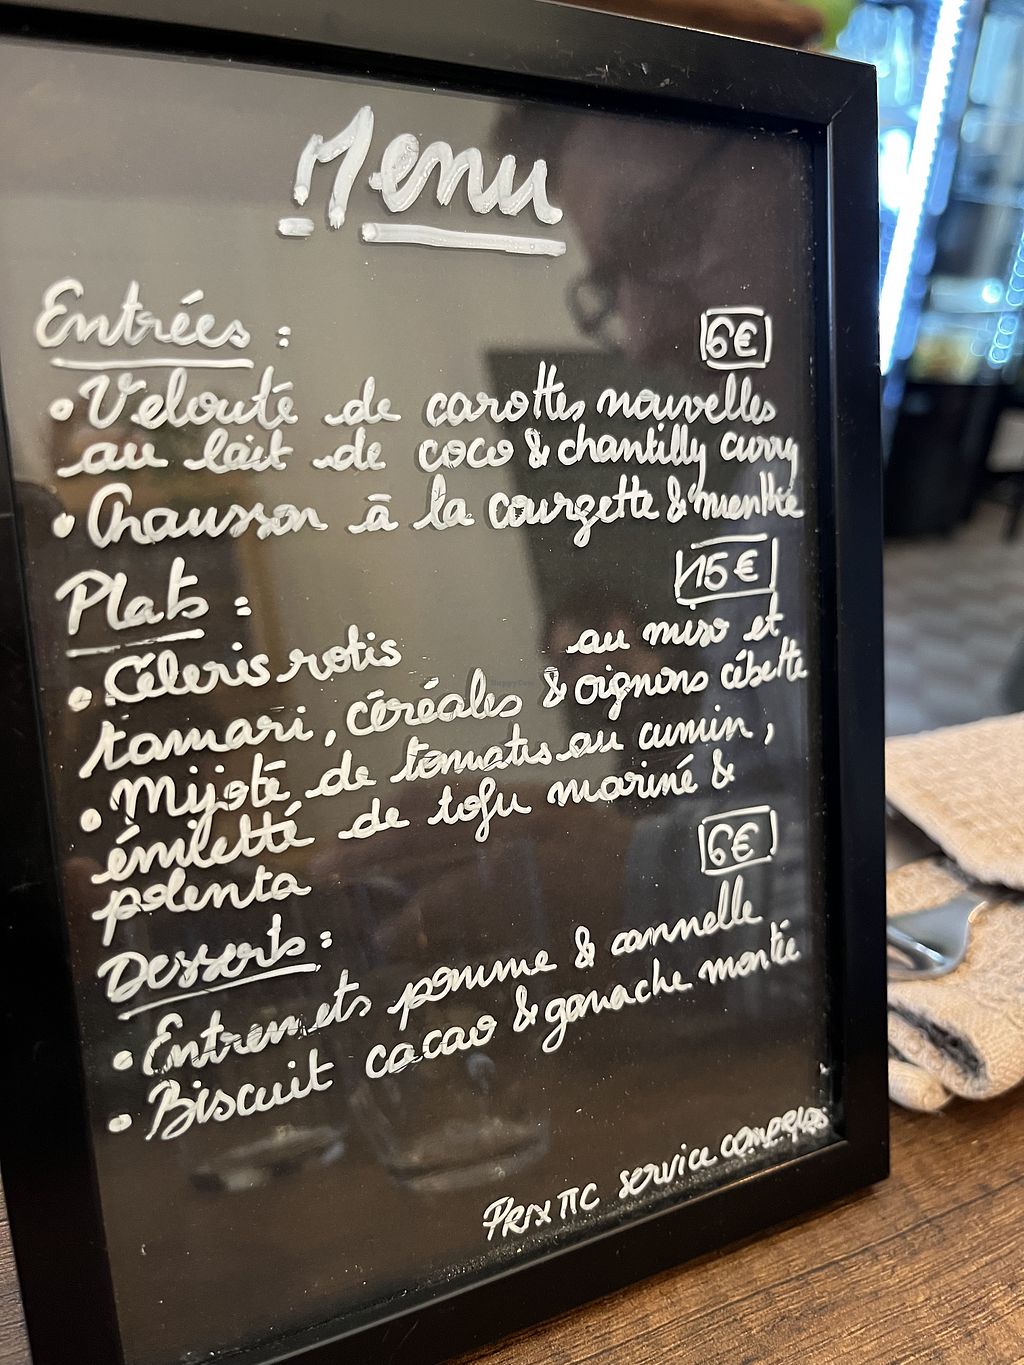 Menu
Entrées :
6€
• Velouté de carottes nouvelles
au lait de coco & chantilly curry
• Chausson à la courgette & menthe
Plats :
15€
• Céleris rotis au miso et
tamari, céréales & oignons cébette
• Mijoté de tomates au cumin,
émietté de tofu mariné &
polenta
6€
Desserts :
• Entremets pomme & cannelle
• Biscuit cacao & ganache montée
Prix TTC service compris